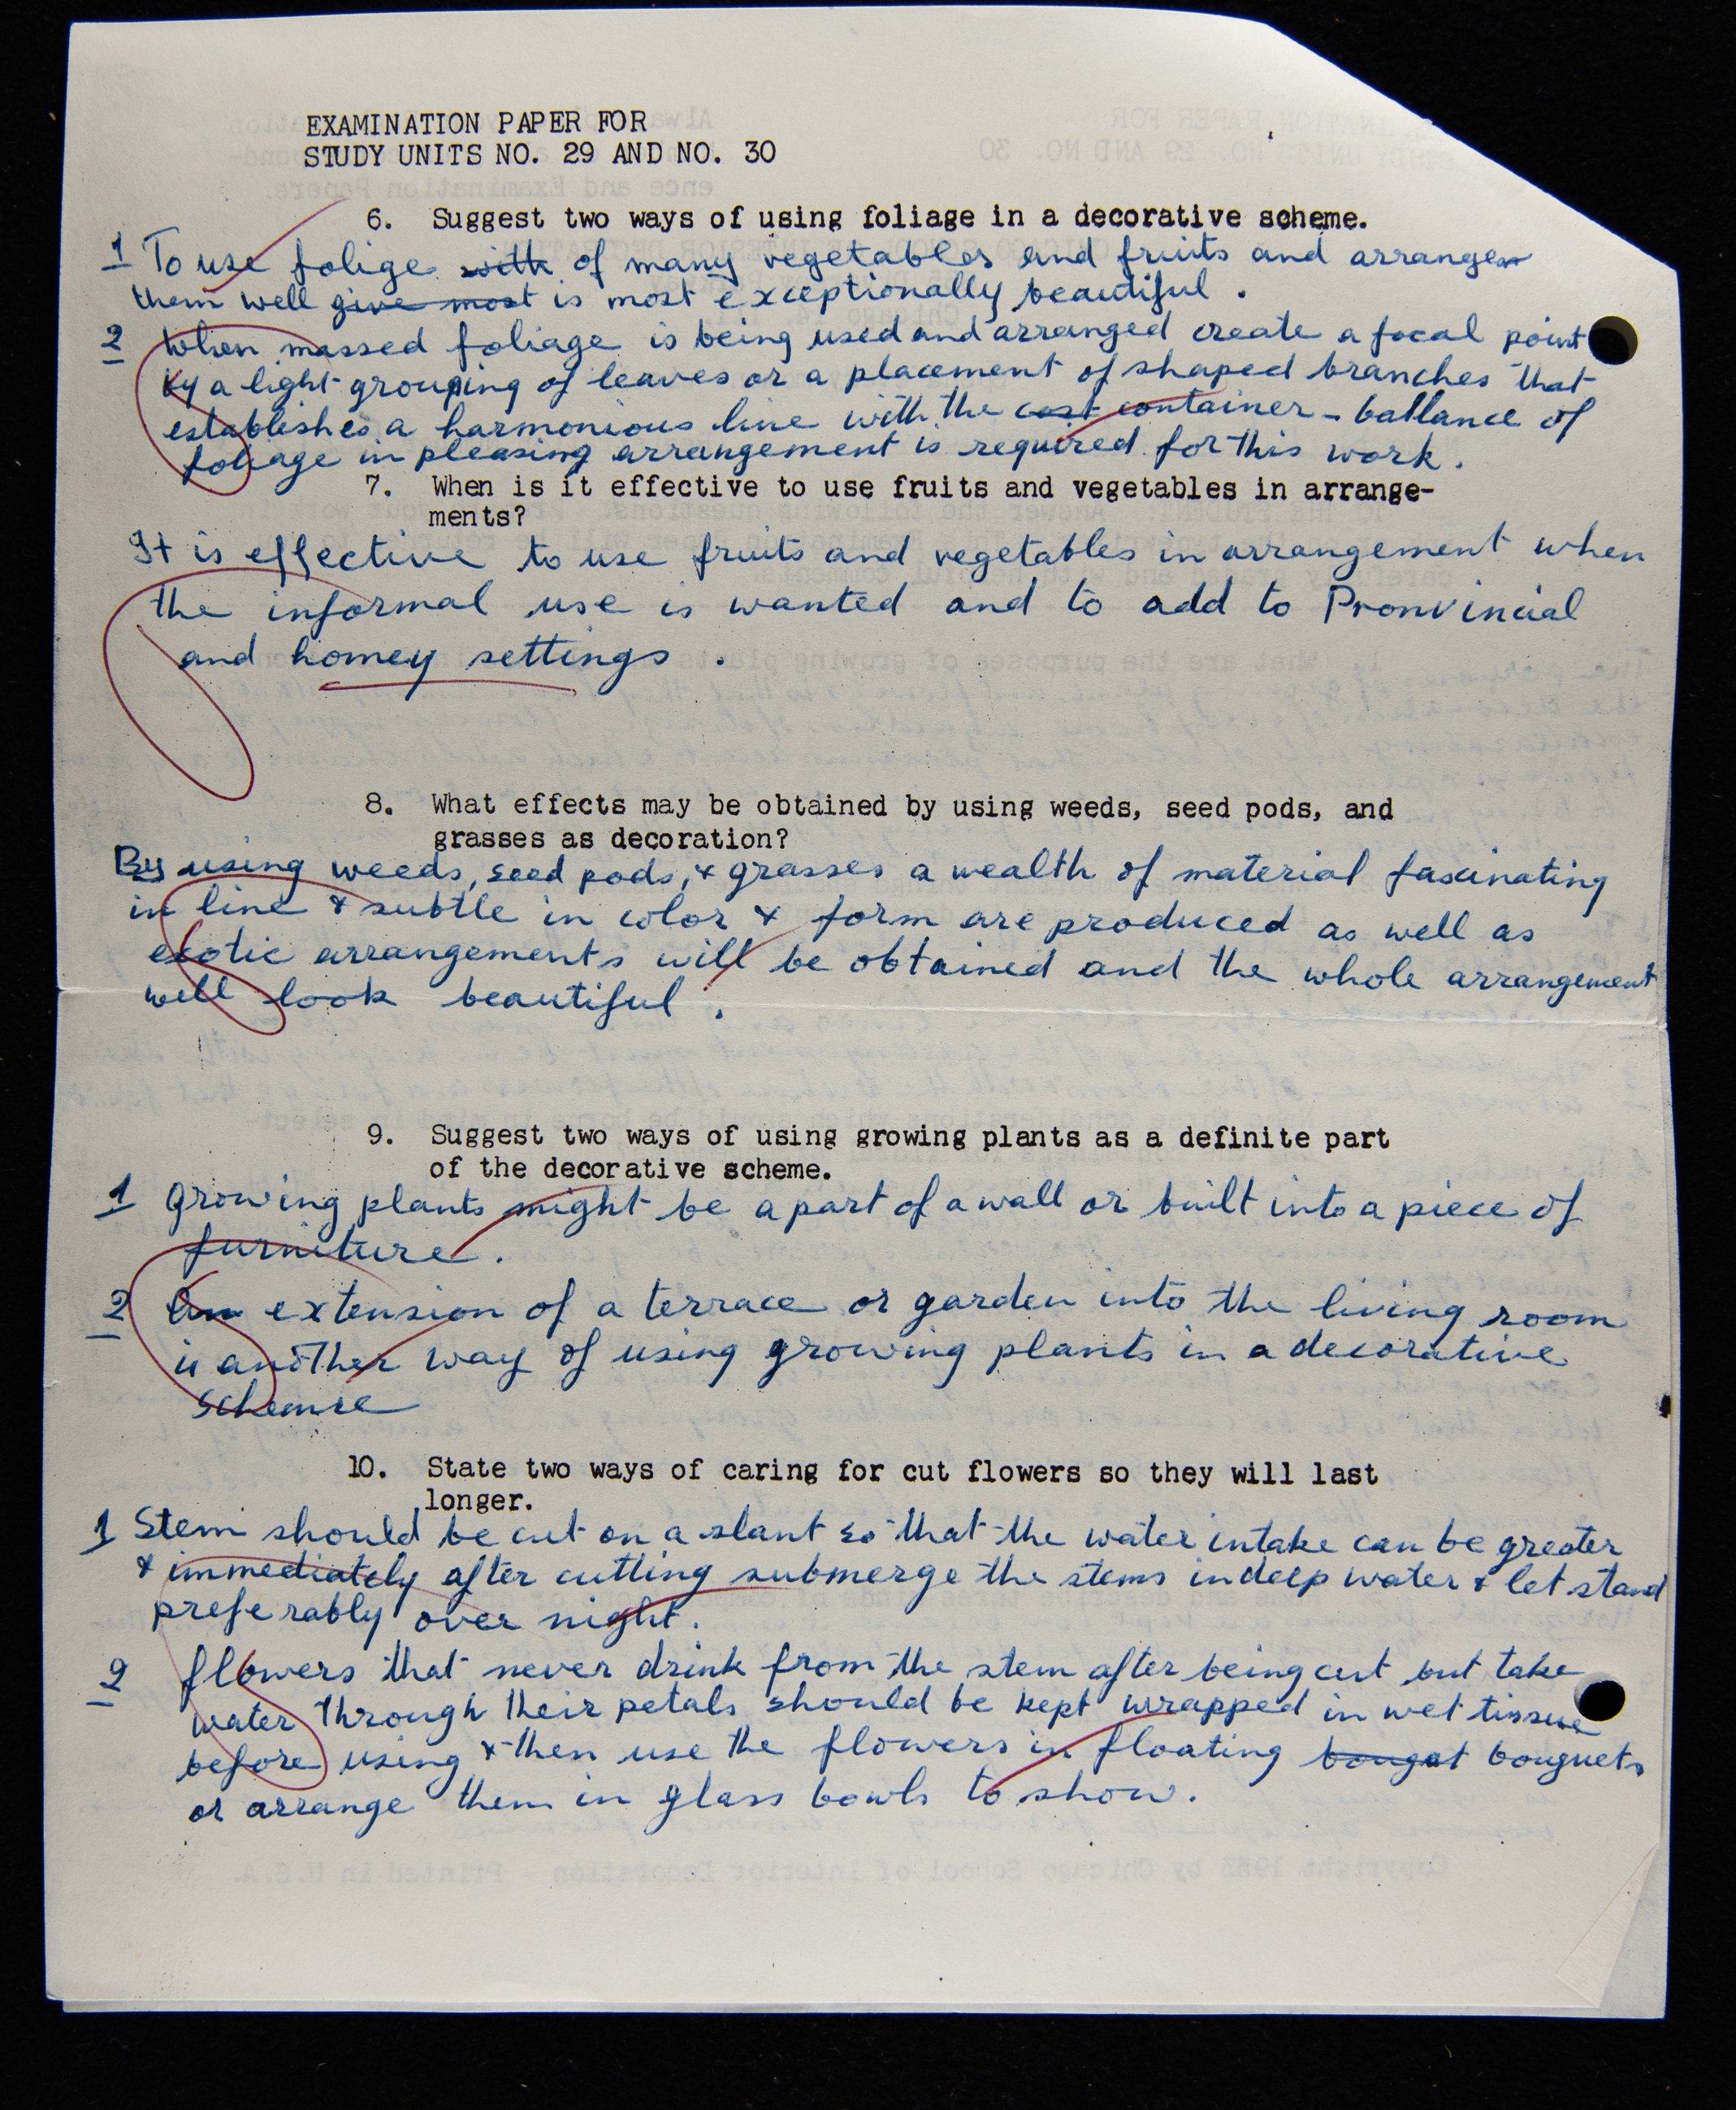 EXAMINATION PAPER FOR
STUDY UNITS NO. 29 AND NO. 30
6. Suggest two ways of using foliage in a decorative scheme.
1 To use folige with of many vegetables and fruits and arrange
them well give most is most exceptionally beautiful.
2 When massed foliage is being used and arranged create a focal point
by a light grouping of leaves or a placement of shaped branches that
establishes a harmonious line with the cont container - ballance of
foliage in pleasing arrangement is required for this work.
7. When is it effective to use fruits and vegetables in arrange-
ments?
It is effective to use fruits and vegetables in arrangement when
the informal use is wanted and to add to Pronvincial
and homey settings.
8. What effects may be obtained by using weeds, seed pods, and
grasses as decoration?
By using weeds, seed pods, & grasses a wealth of material fascinating
in line & subtle in color & form are produced as well as
exotic arrangements will be obtained and the whole arrangement
will look beautiful.
9. Suggest two ways of using growing plants as a definite part
of the decorative scheme.
1 Growing plants might be a part of a wall or built into a piece of
furniture.
2 An extension of a terrace or garden into the living room
is another way of using growing plants in a decorative
scheme
10. State two ways of caring for cut flowers so they will last
longer.
1 Stem should be cut on a slant so that the water intake can be greater
& immediately after cutting submerge the stems in deep water & let stand
preferably over night.
2 flowers that never drink from the stem after being cut but take
water through their petals should be kept wrapped in wet tissue
before using & then use the flowers in floating bouqut bouquets
or arrange them in glass bowls to show.